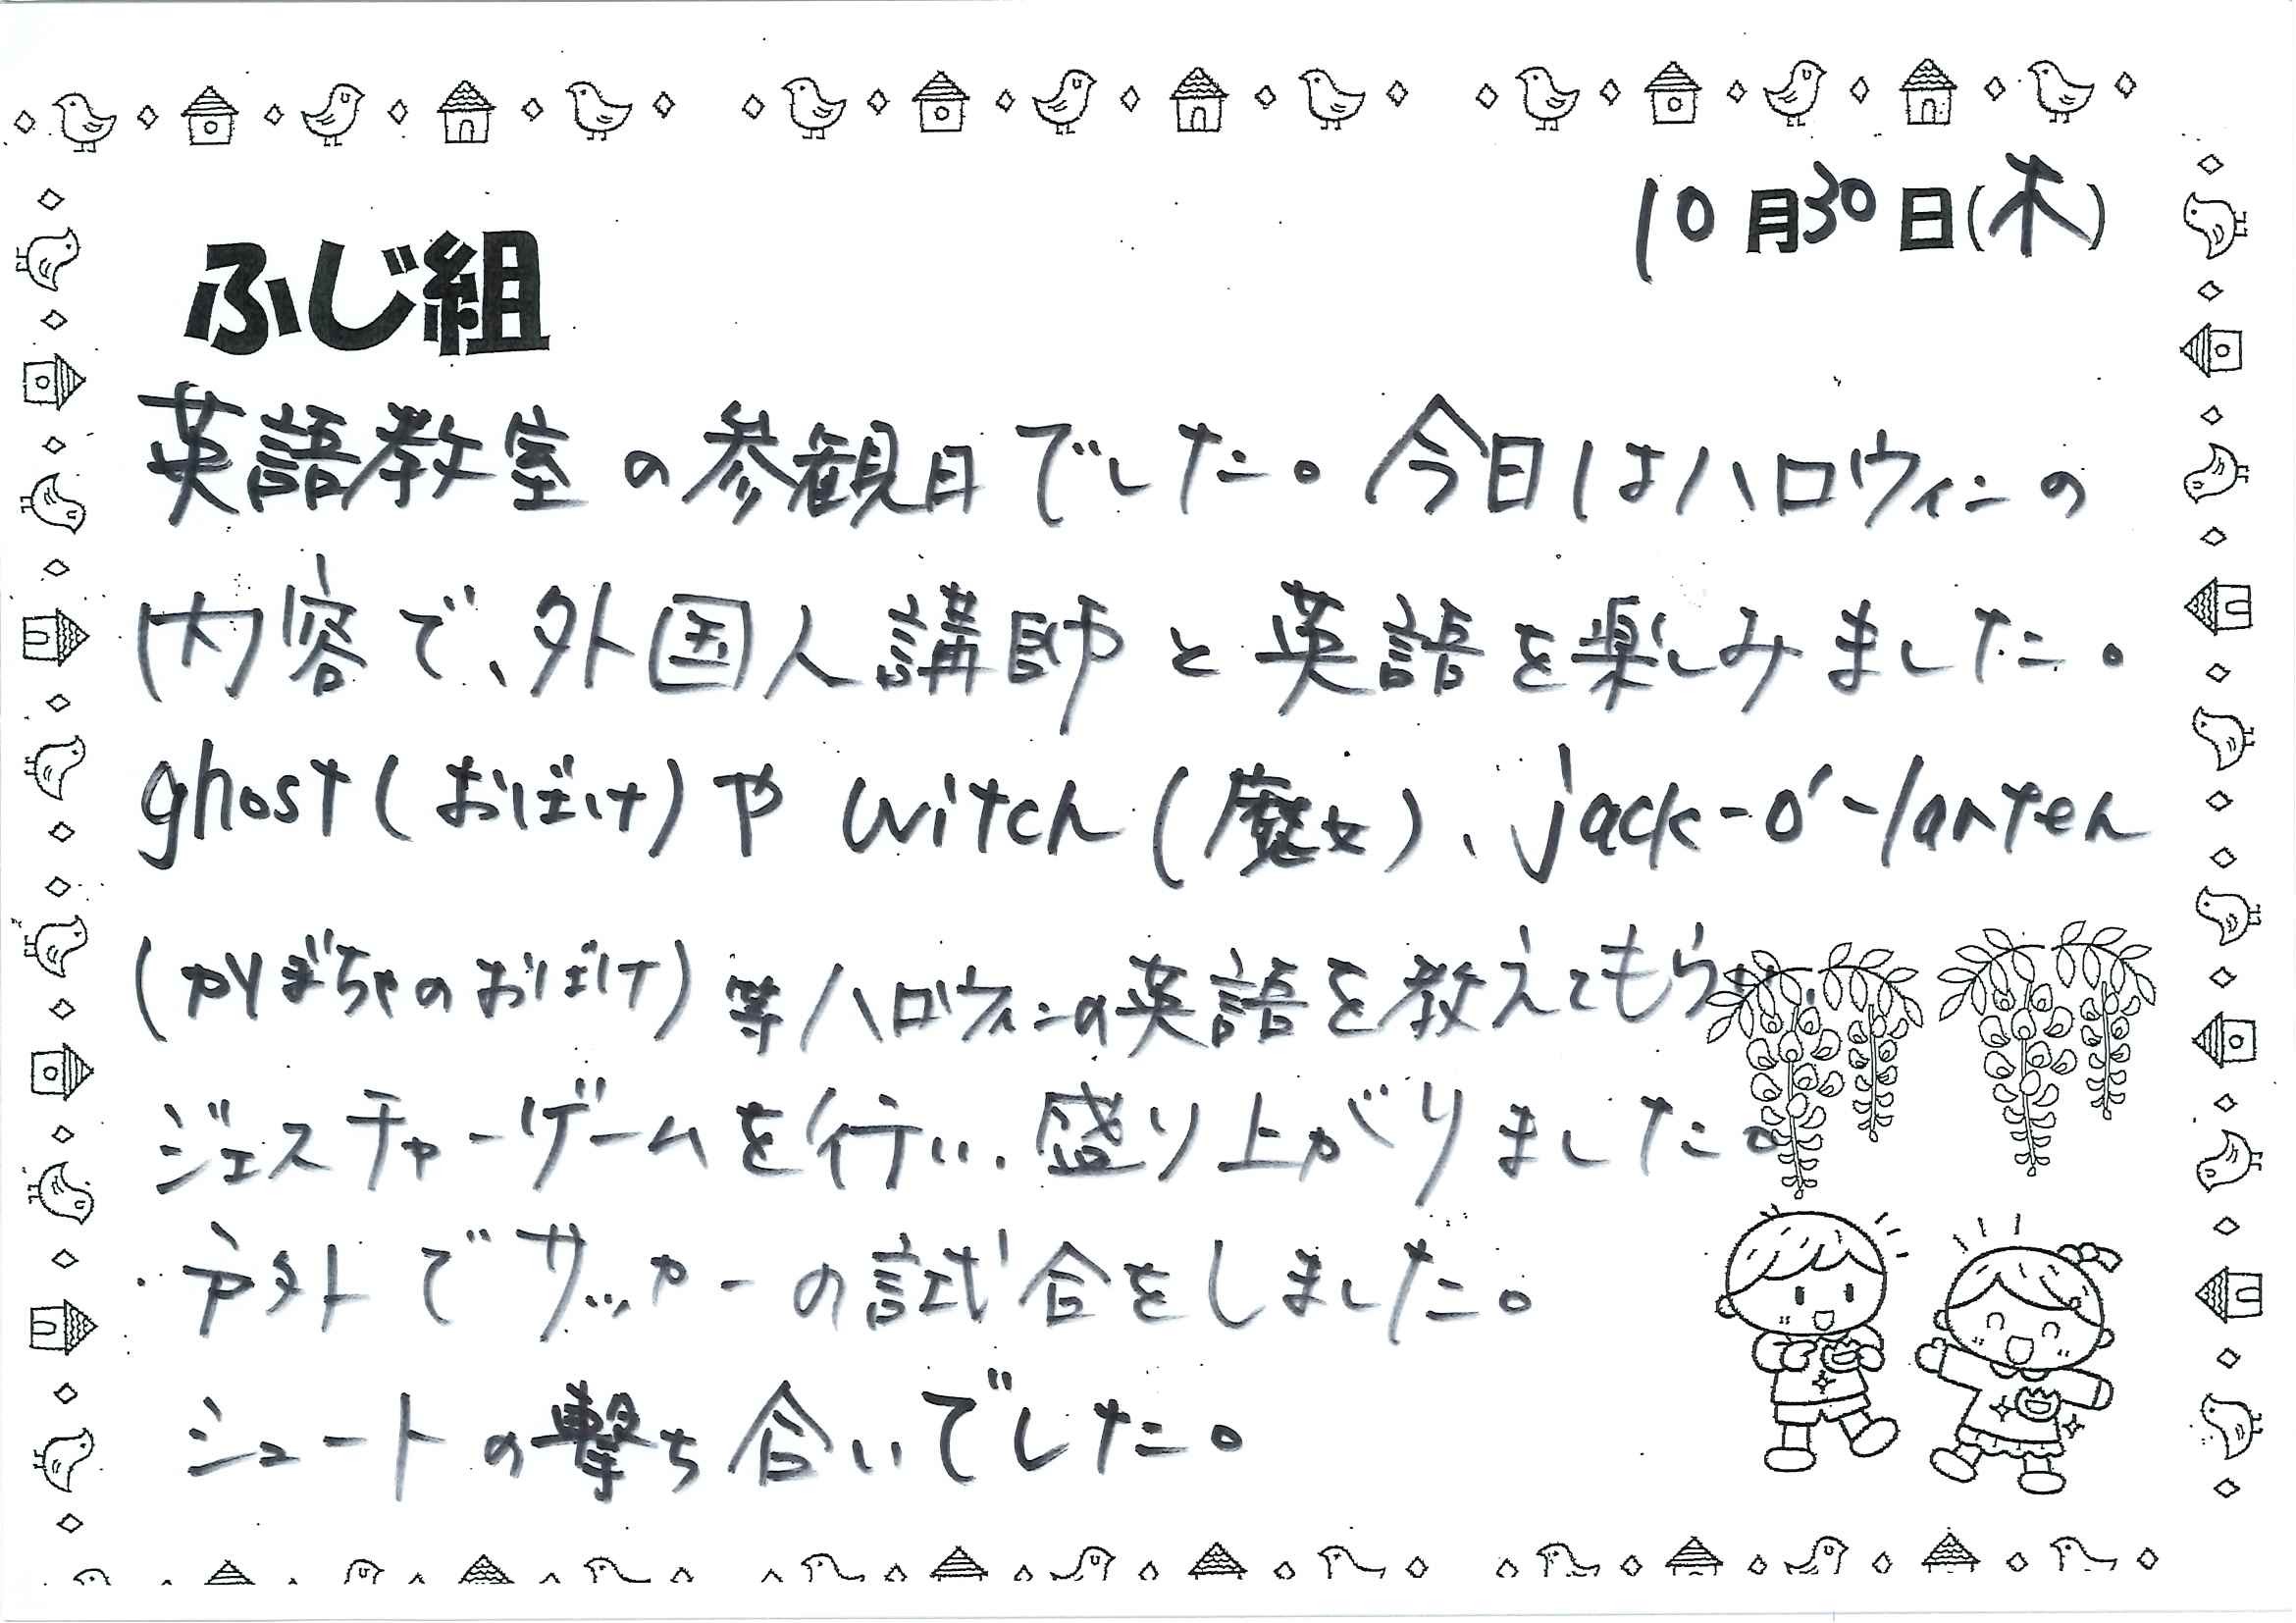 10月30日(木)
ふじ組
英語教室の参観日でした。今日はハロウィンの
内容で、外国人講師と英語を楽しみました。
ghost(おばけ)や witch(魔女)、jack-o'-lantern
(かぼちゃのおばけ)等ハロウィンの英語を教えてもらい、
ジェスチャーゲームを行い、盛り上がりました。
・戸外でサッカーの試合をしました。
シュートの撃ち合いでした。